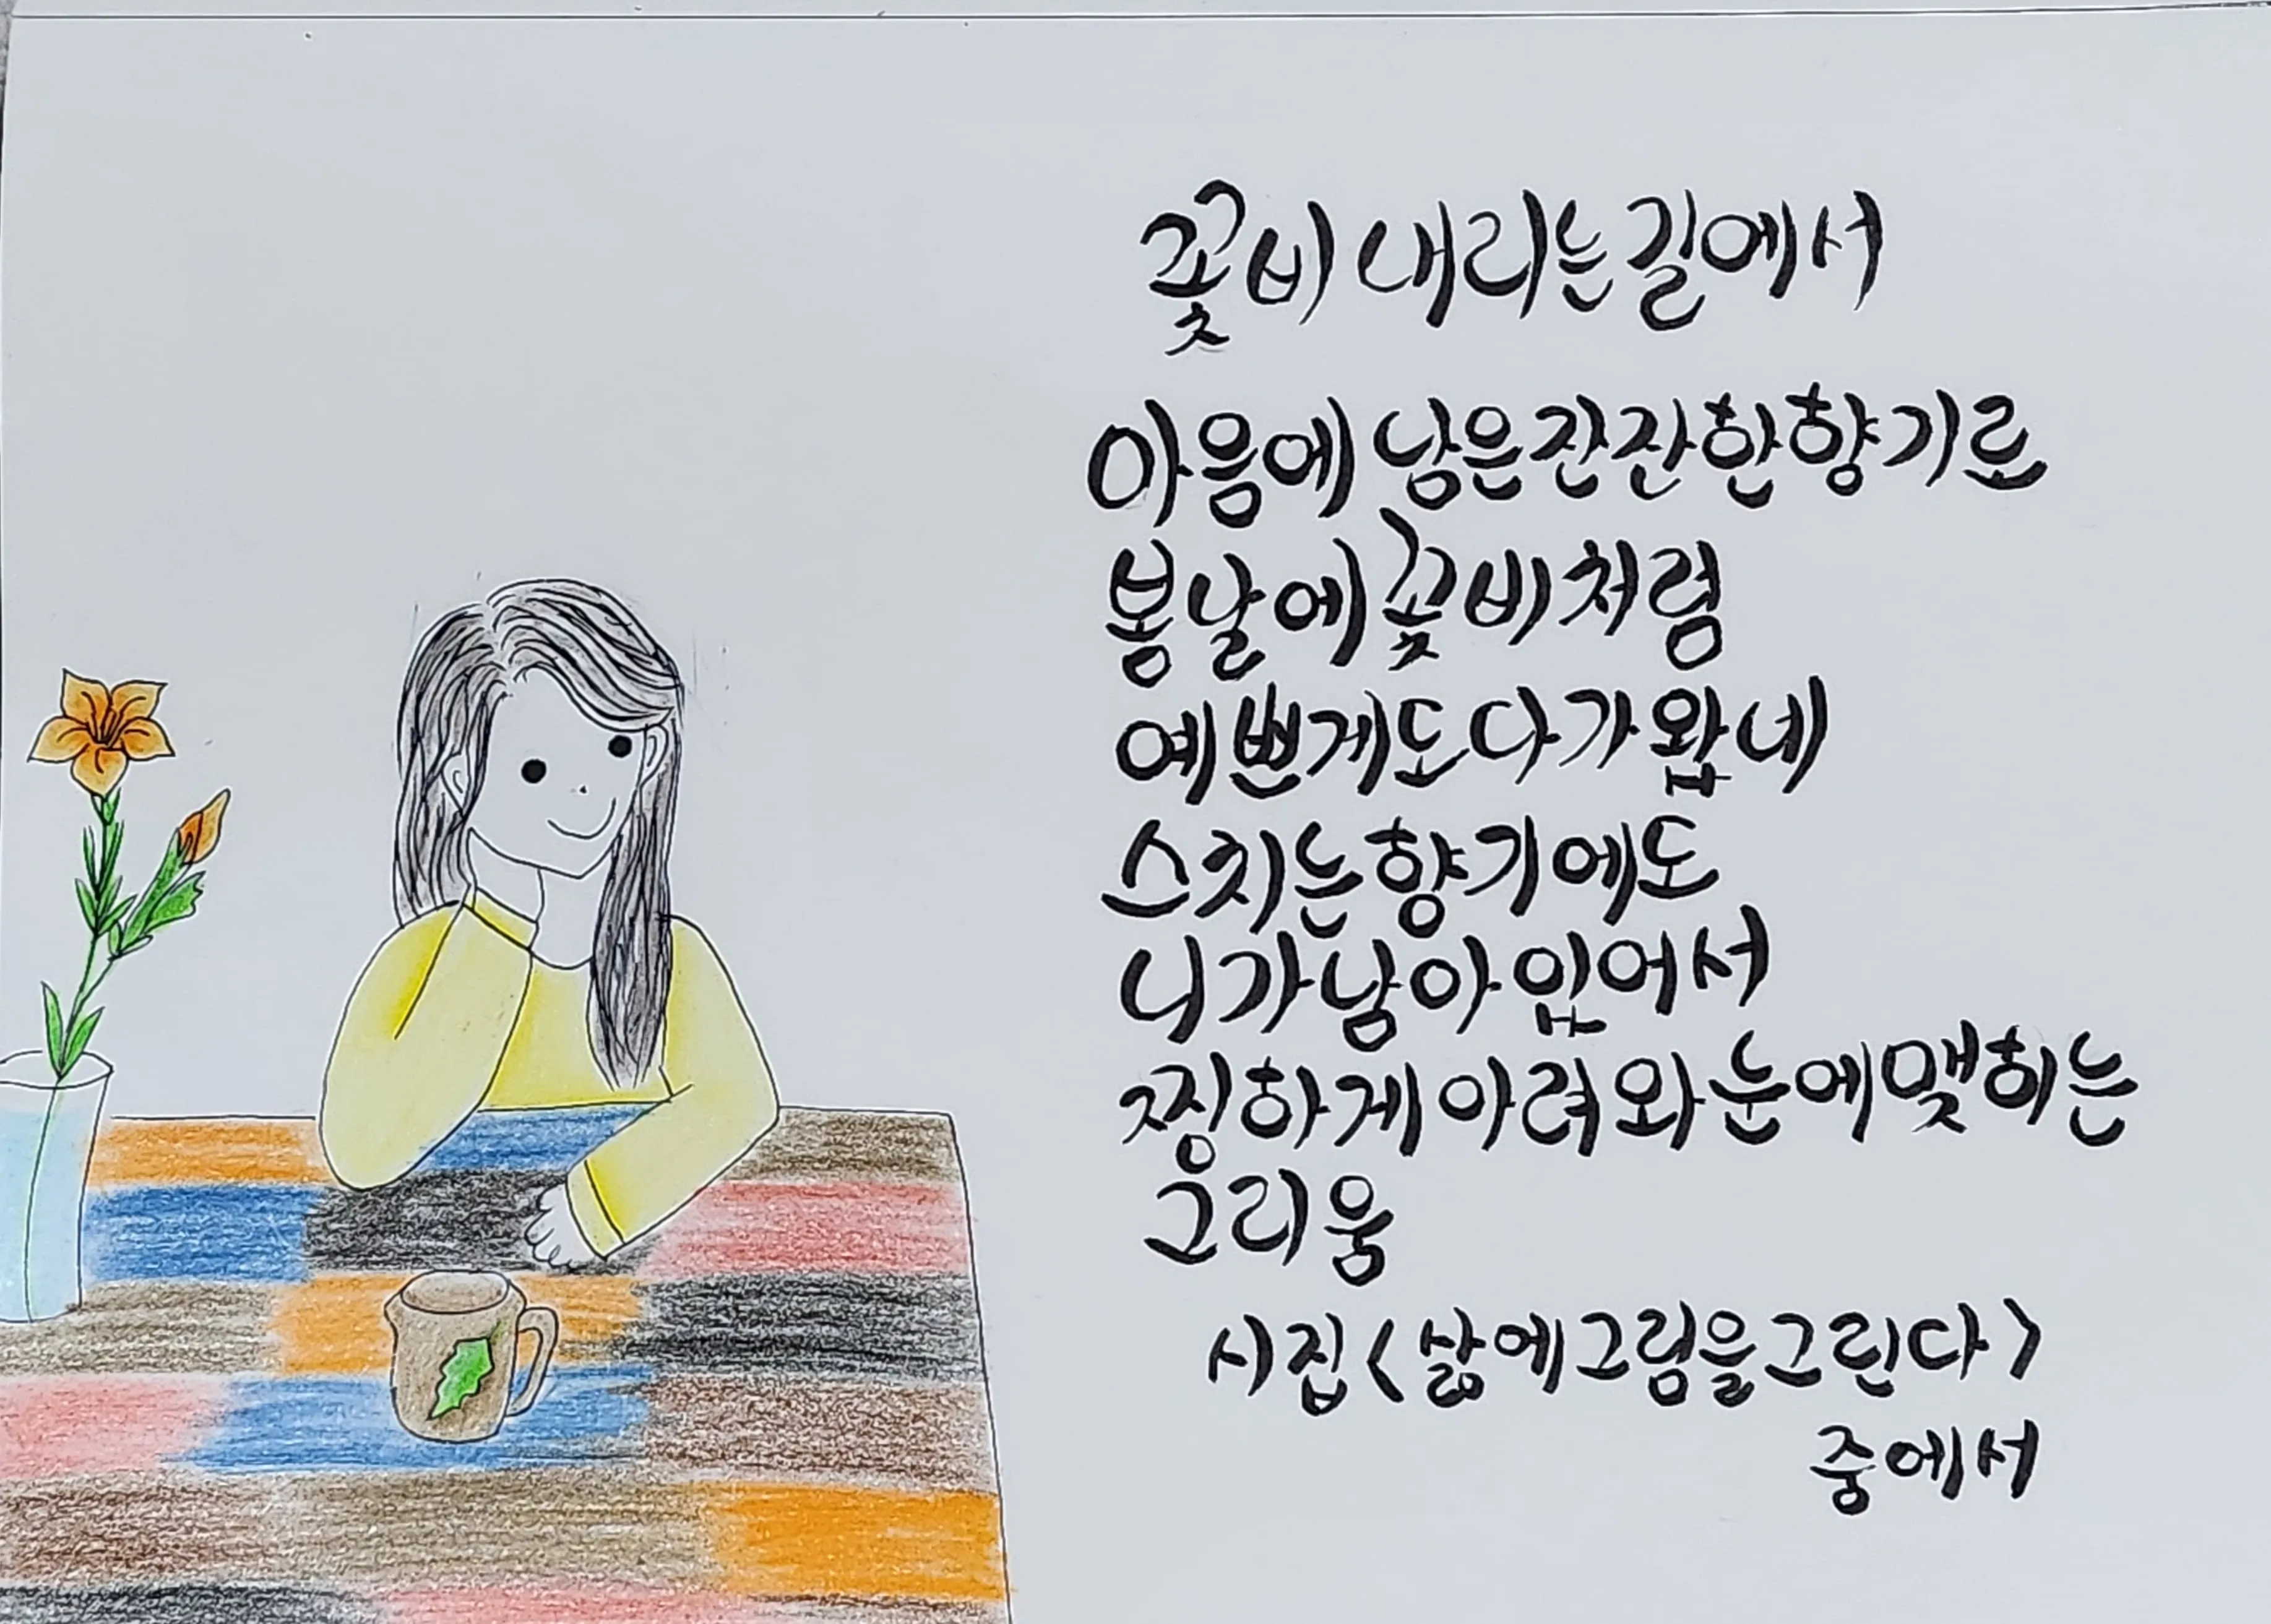 꽃비 내리는 길에서
마음에 남은 잔잔한 향기로
봄날에 꽃비처럼
예쁜게도 다가왔네
스치는 향기에도
니가 남아 있어서
찡하게 아려와 눈에 맺히는
그리움
시집 <삶에 그림을 그린다>
중에서